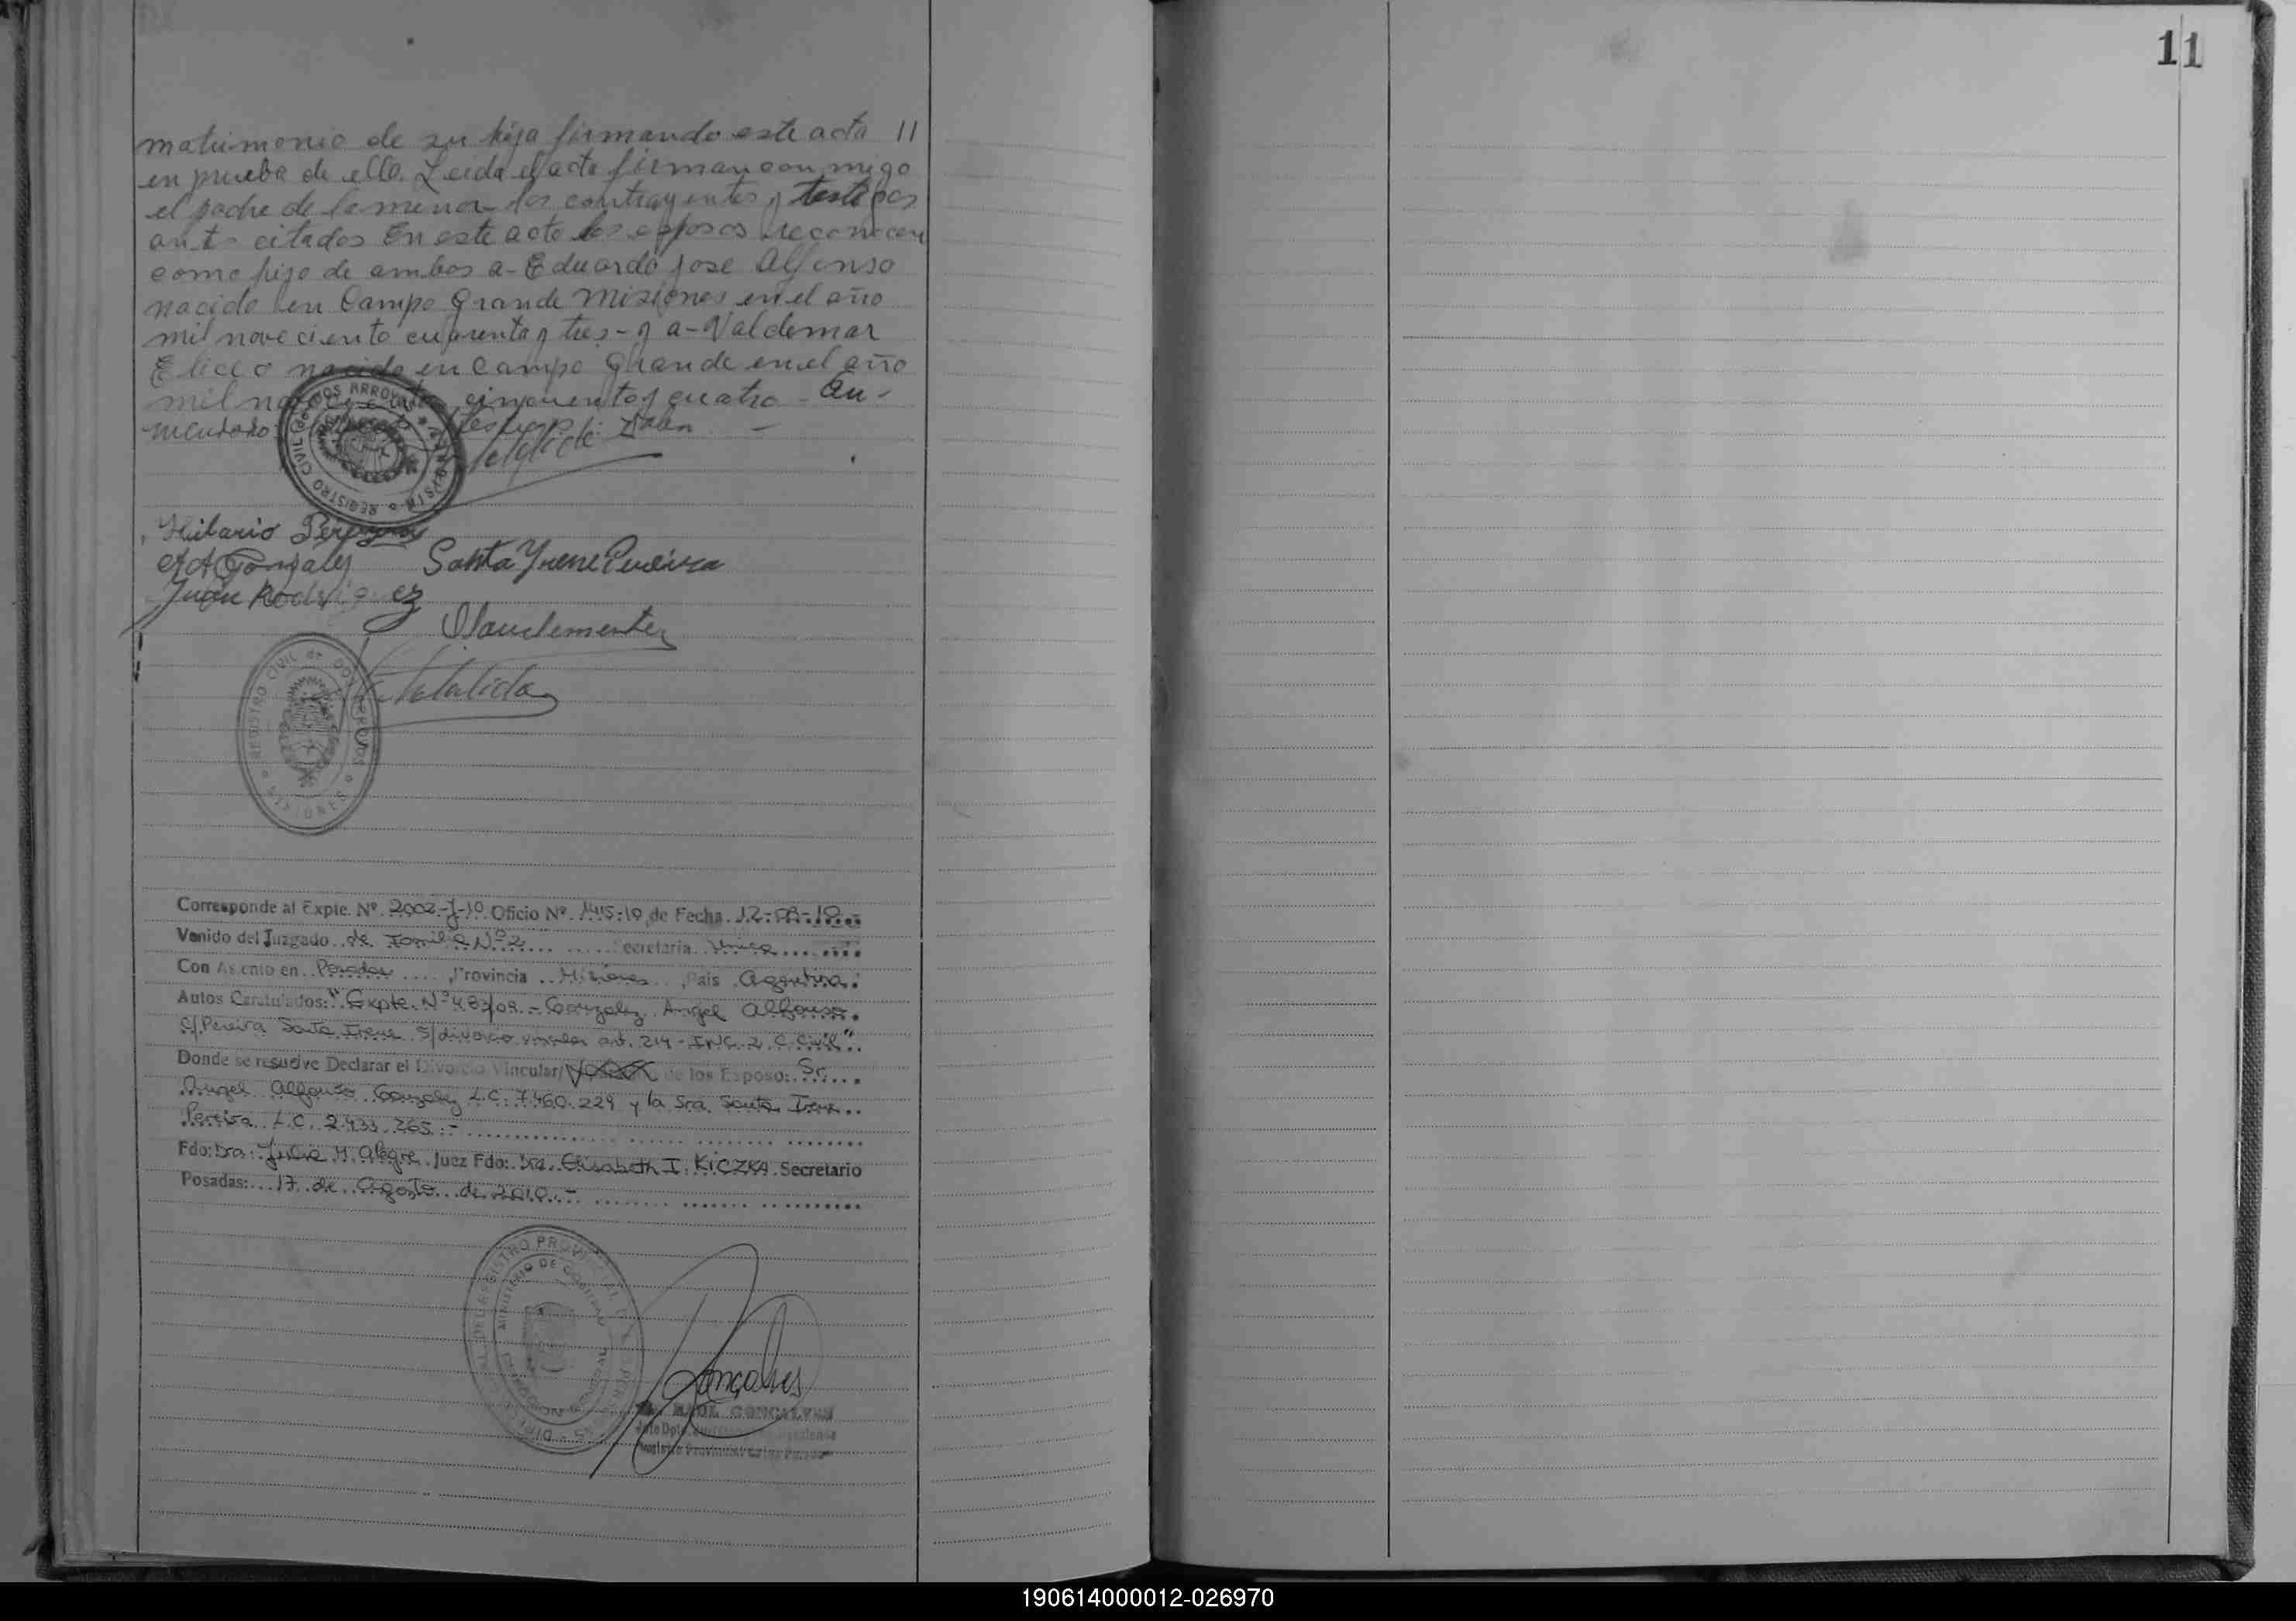 11
matrimonio de su hija firmando este acta 11
en prueba de ello. Leida el acta firman conmigo
el padre de la menor los contrayentes y testigos
ants citados En este acto los esposos reconocen
como hijo de ambos a - Eduardo Jose Alfonso
nacido en Campo Grande Misiones en el año
mil noveciento cuarenta y tres - y a - Valdemar
Eliceo nacido en Campo Grande en el año
mil cincuenta y cuatro - En-
mendado: testigos: Valen -
REGISTRO CIVIL de DOS ARROYOS
Hilario
A A Gonzalez Santa Yrene Pereira
Juan Rodriguez
REGISTRO CIVIL de DOS ARROYOS MISIONES
Corresponde al Expte. Nº. 2002-J-10 Oficio Nº. 1415-10 de Fecha. 12-08-10
Venido del Juzgado de Familia Nº 2 Secretaria Unica
Con Asiento en Posadas, Provincia Misiones, Pais Argentina.
Autos Caratulados: "Expte. Nº 483/08.- Gonzalez Angel Alfonso.
C/ Pereira Santa Irene S/divorcio vincular art. 214 - INC. 2. C. Civil"
Donde se resuelve Declarar el Divorcio Vincular/ de los Esposo: Sr.
Angel Alfonso Gonzalez L.C. 7.460.229 y la Sra. Santa Irene
Pereira L.C. 2.433.265.-
Fdo: Dra: Julia M. Alegre Juez Fdo: Dra. Elisabeth I. KICZKA Secretario
Posadas: 17 de Agosto de 2010.-
MINISTERIO DE GOBIERNO
Goncalves
RAUL GONCALVES
190614000012-026970